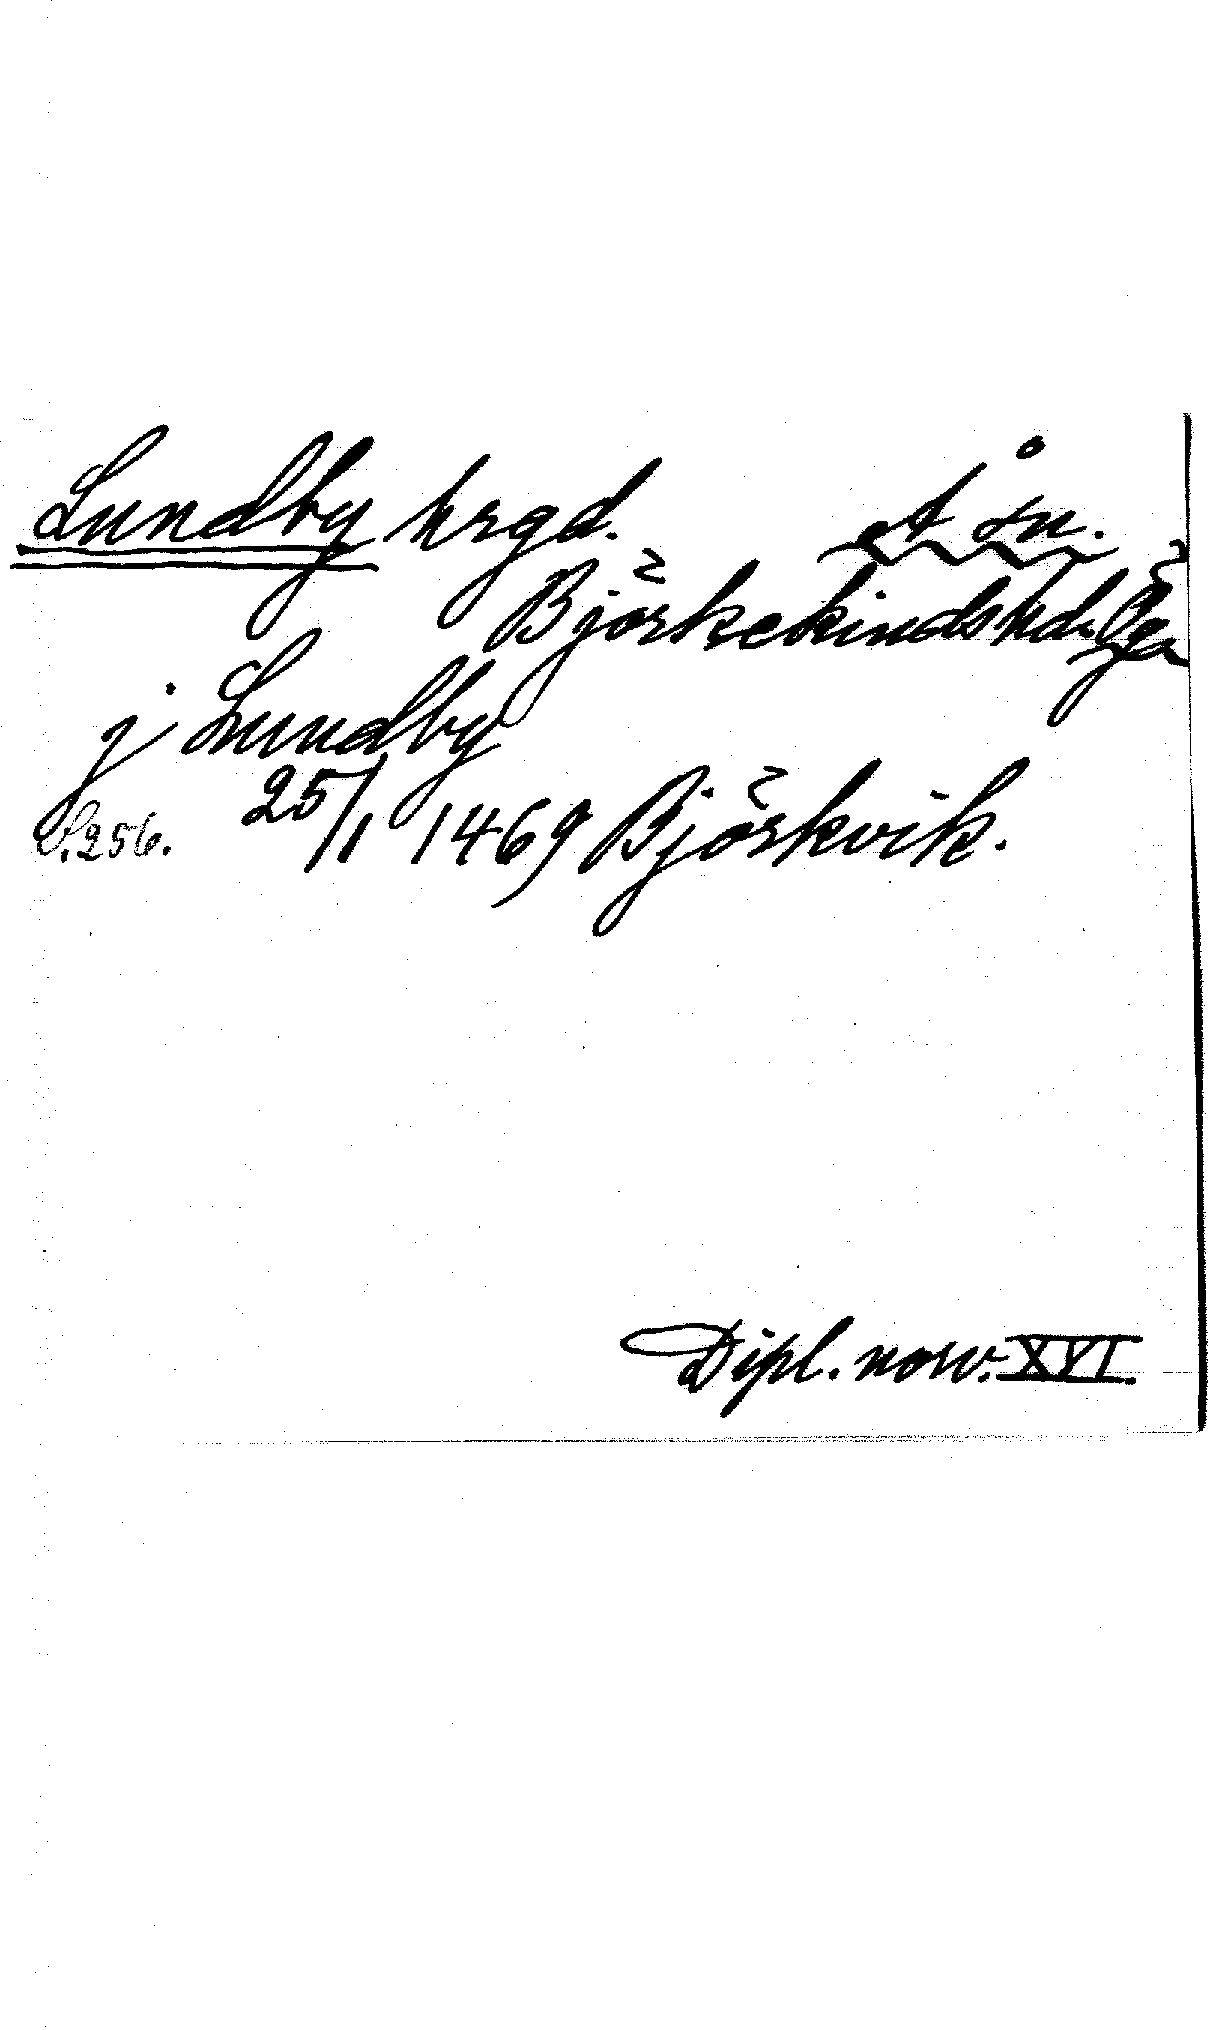 Lundby hrgd. Å sn.
Björkekinds hd. Ög.
j Lundby
S. 256. 25/1 1469 Björkvik.
Dipl. norv. XVI.